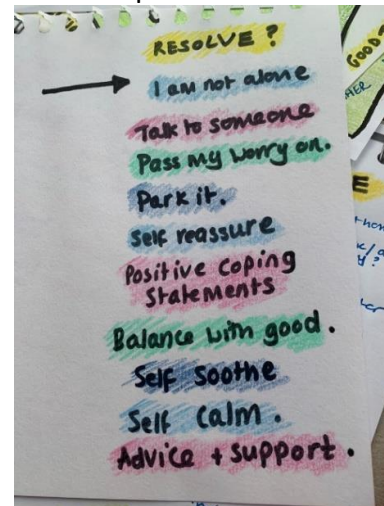 RESOLVE?
I am not alone
Talk to someone
Pass my worry on.
Park it.
Self reassure
Positive Coping
Statements
Balance with good.
Self Soothe
Self Calm.
Advice + support.
GOOD?